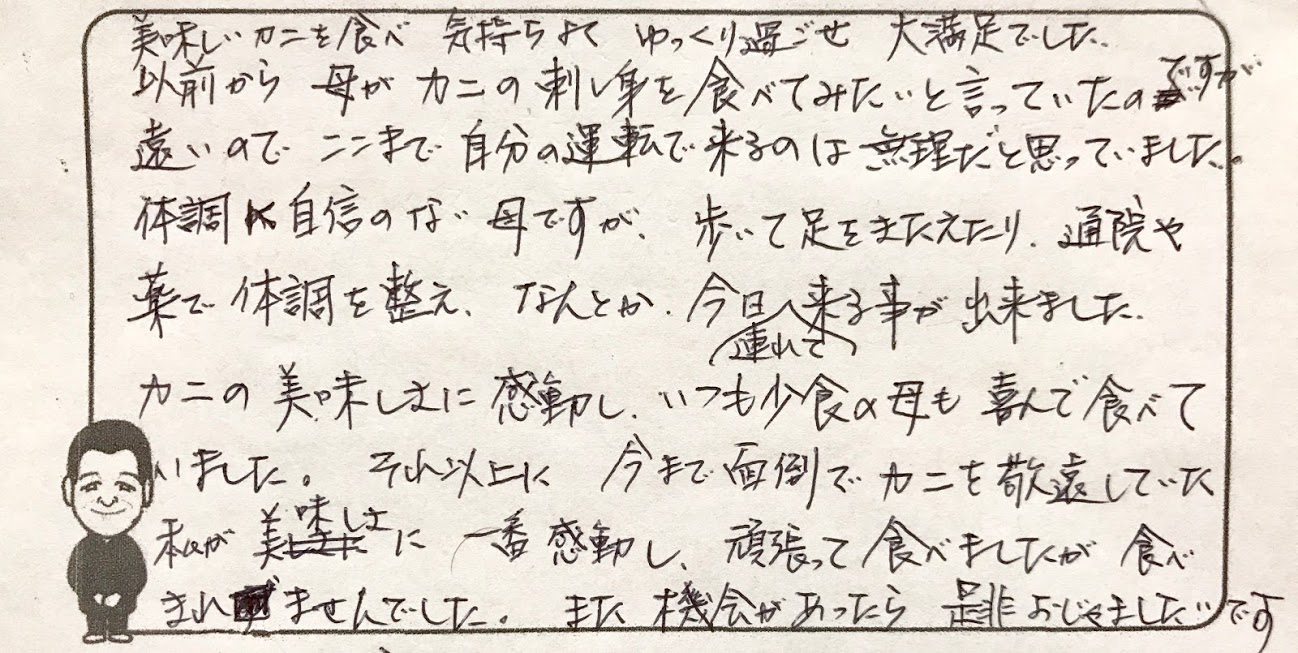 美味しいカニを食べ 気持ちよく ゆっくり過ごせ 大満足でした。
以前から 母が カニの刺し身を食べてみたいと言っていたのですが
遠いので ここまで 自分の運転で来るのは無理だと思っていました。
体調に自信のない母ですが、歩いて足をきたえたり、通院や
薬で体調を整え、なんとか、今日、来る事が出来ました。
(連れて)
カニの美味しさに感動し、いつも少食の母も喜んで食べて
いました。 それ以上に 今まで面倒でカニを敬遠していた
私が美味しさに 一番感動し、頑張って食べましたが 食べ
きれませんでした。 また機会があったら 是非おじゃましたいです